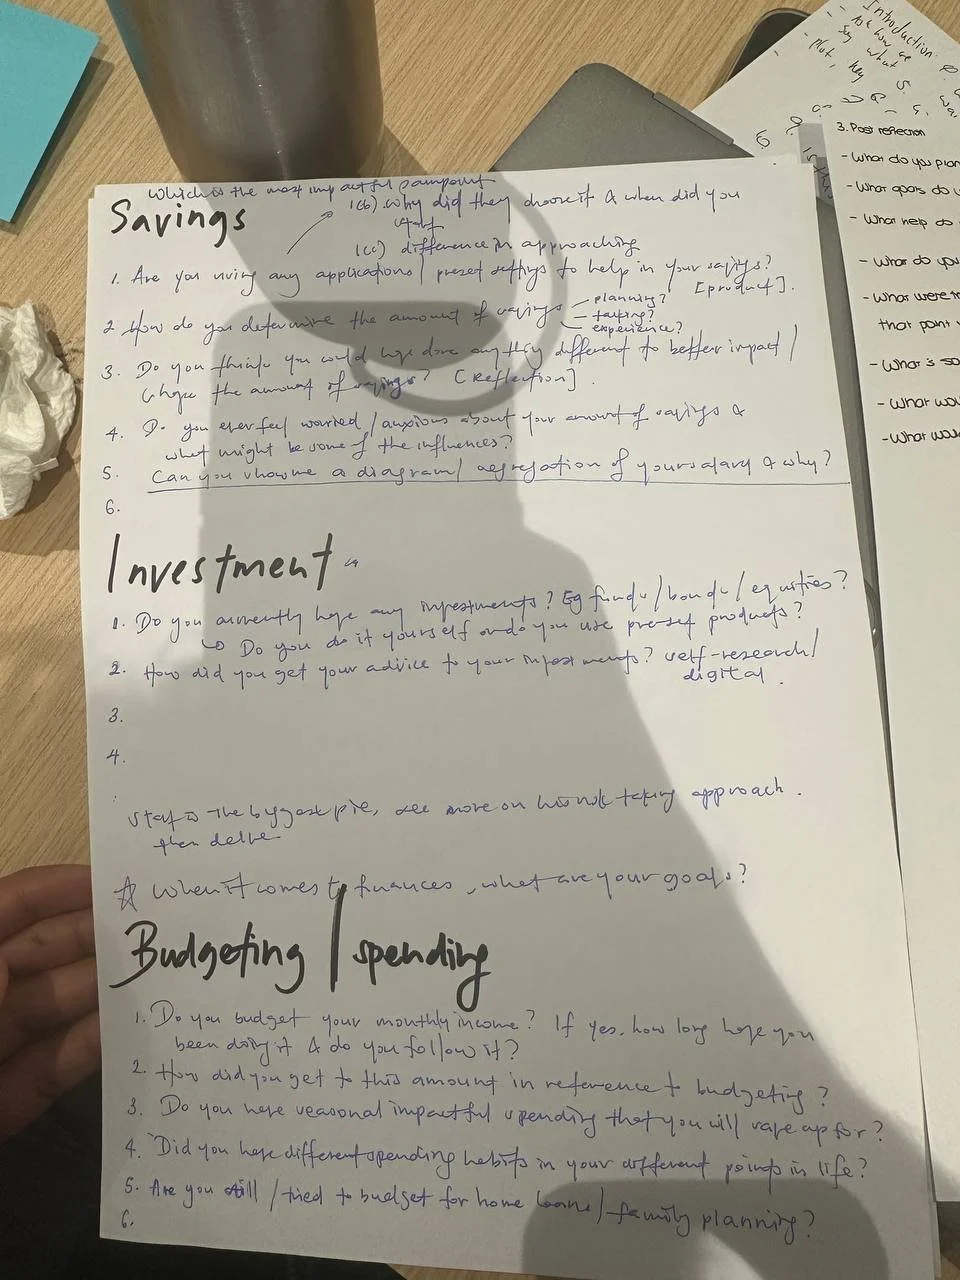 which is the most impactful painpoint
Savings
1(b). why did they choose it & when did you
start
1(c) difference in approaching
1. Are you using any applications / preset settings to help in your savings?
[product].
2. How do you determine the amount of savings
— planning?
— talking?
— experience?
3. Do you think you could have done anything different to better impact /
change the amount of savings? [Reflection].
4. Do you ever feel worried / anxious about your amount of savings &
what might be some of the influences?
5. Can you show me a diagram / of your salary & why?
6.
Investment
1. Do you currently have any investments? Eg funds / bonds / equities?
↳ Do you do it yourself or do you use preset products?
2. How did you get your advice to your investments? self-research /
digital.
3.
4.
the biggest pie, see more on taking approach.
then delve
☆ When it comes to finances, what are your goals?
Budgeting / spending
1. Do you budget your monthly income? If yes, how long have you
been doing it & do you follow it?
2. How did you get to this amount in reference to budgeting?
3. Do you have seasonal impactful spending that you will save up for?
4. Did you have different spending habits in your different points in life?
5. Are you still / tried to budget for home loans / family planning?
6.
Introduction
say what
plot, key
3. Post reflection
- What do you plan
- What goals do
- What help do
- What do you
- What were
that point
- What is so
- What wou
- What wou